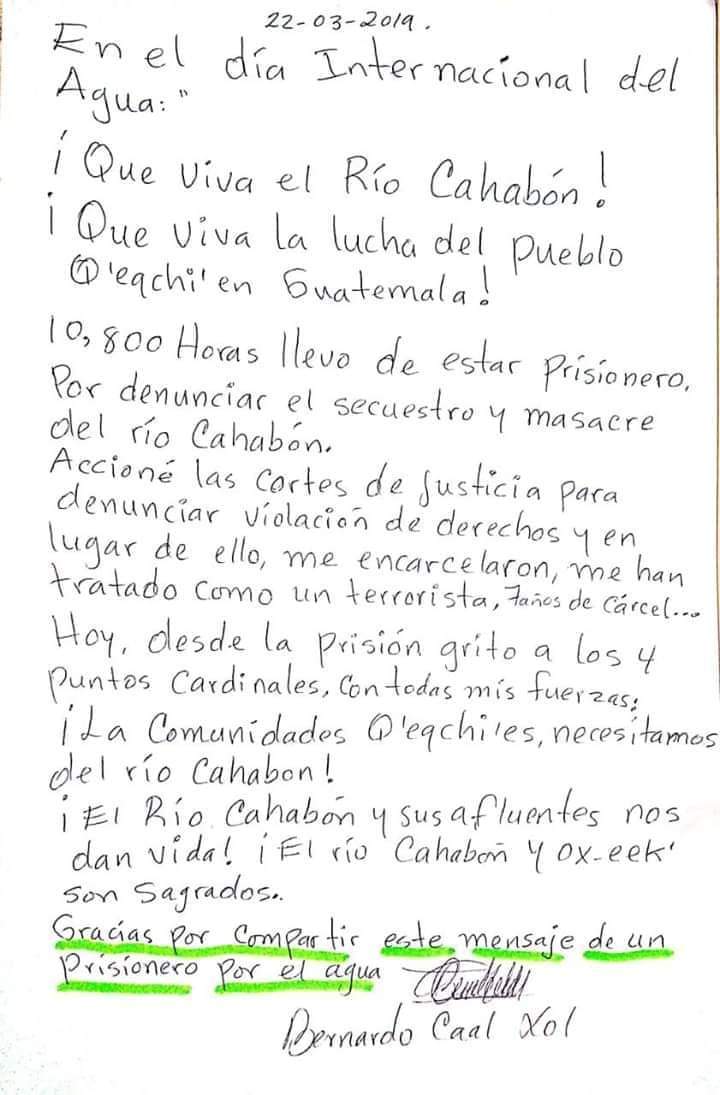 22-03-2019.
En el día Internacional del
Agua:"
¡ Que viva el Río Cahabón!
¡ Que viva la lucha del pueblo
Q'eqchi' en Guatemala!
10,800 Horas llevo de estar prisionero,
Por denunciar el secuestro y masacre
del río Cahabón.
Accioné las cortes de justicia para
denunciar violación de derechos y en
lugar de ello, me encarcelaron, me han
tratado como un terrorista, 7años de cárcel...
Hoy, desde la prisión grito a los 4
puntos cardinales, con todas mis fuerzas:
¡La Comunidades Q'eqchi'es, necesitamos
del río Cahabon!
¡El Río Cahabón y sus afluentes nos
dan vida! ¡El río Cahabón y ox-eek'
son sagrados..
Gracias por compartir este mensaje de un
prisionero por el agua
Bernardo Caal Xol